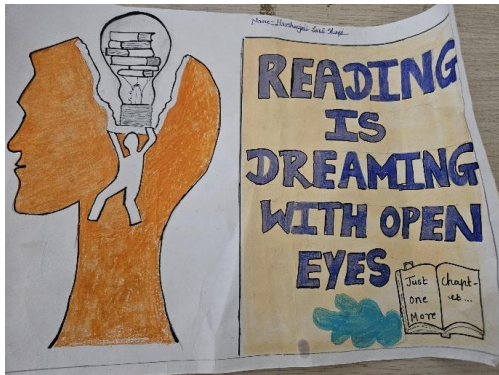 Name:-
READING
IS
DREAMING
WITH OPEN
EYES
Just
one
More
Chapt-
er...